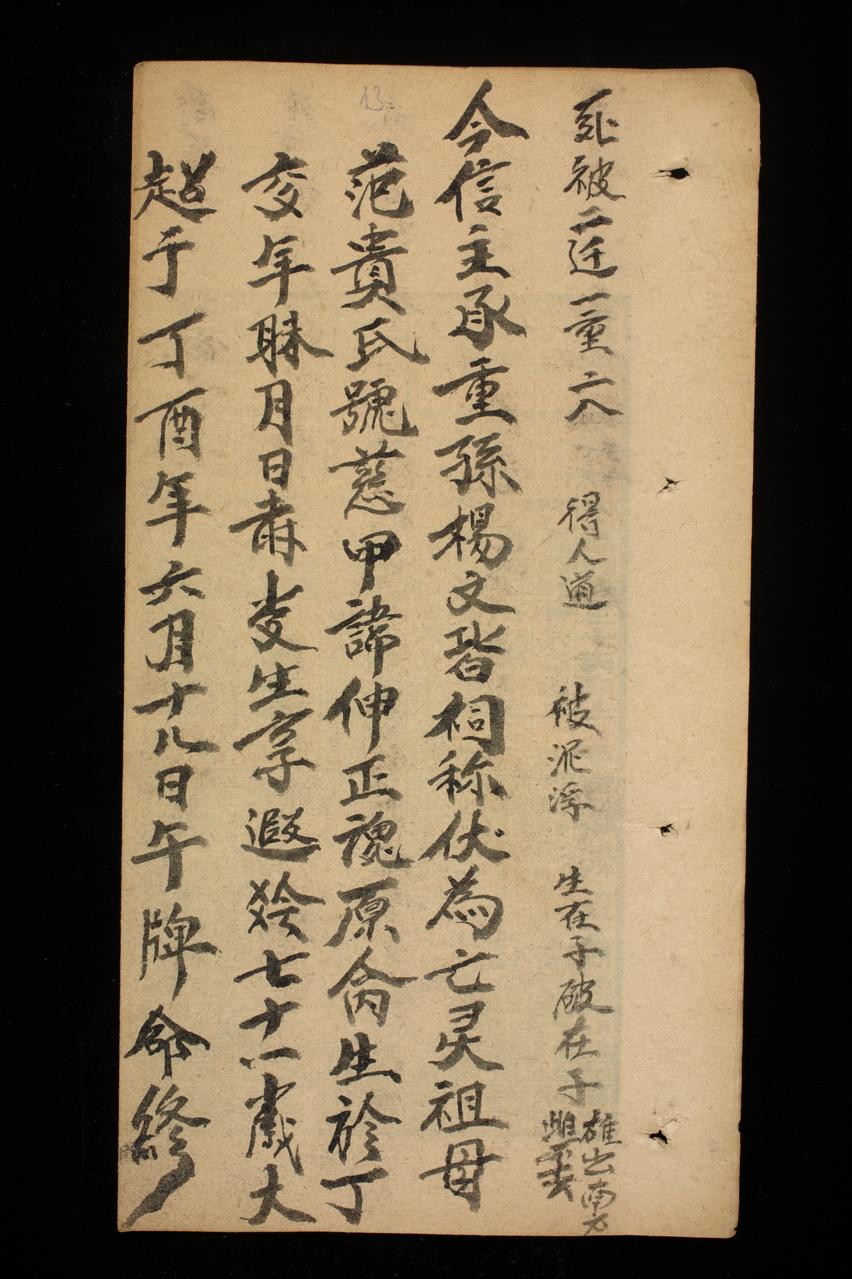 死被二迁一重六八 得人道 被泥浮 生在子破在子 雄出南方
今信主承重孫楊文階祠称伏為亡灵祖母
范貴氏號慈甲諱伸正魂原命生於丁
亥年 月日 受生享遐齡七十一歲大
超于丁酉年六月十九日午牌命終